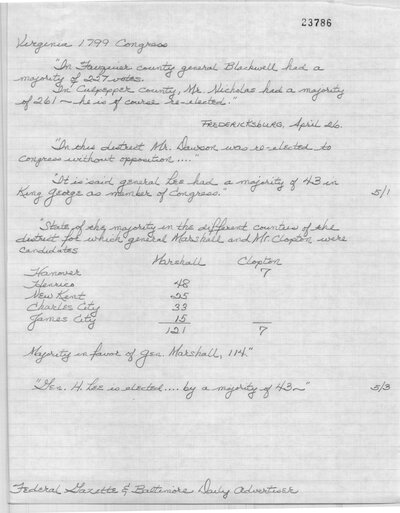 23786
Virginia 1799 Congress
"In Fauquier county general Blackwell had a
majority of 227 votes.
"In Culpepper county, Mr. Nicholas had a majority
of 261 ~ he is of course re-elected."
FREDERICKSBURG, April 26.
"In this district Mr. Dawson was re-elected to
congress without opposition...."
"It is said general Lee had a majority of 43 in
King George as member of Congress." 5/1
"State of the majority in the different counties of the
district for which general Marshall and Mr. Clopton were
candidates
Marshall Clopton
Hanover 7
Henrico 48
New Kent 25
Charles City 33
James City 15
121 7
Majority in favor of Gen. Marshall, 114."
"Gen. H. Lee is elected.... by a majority of 43~" 5/3
Federal Gazette & Baltimore Daily Advertiser